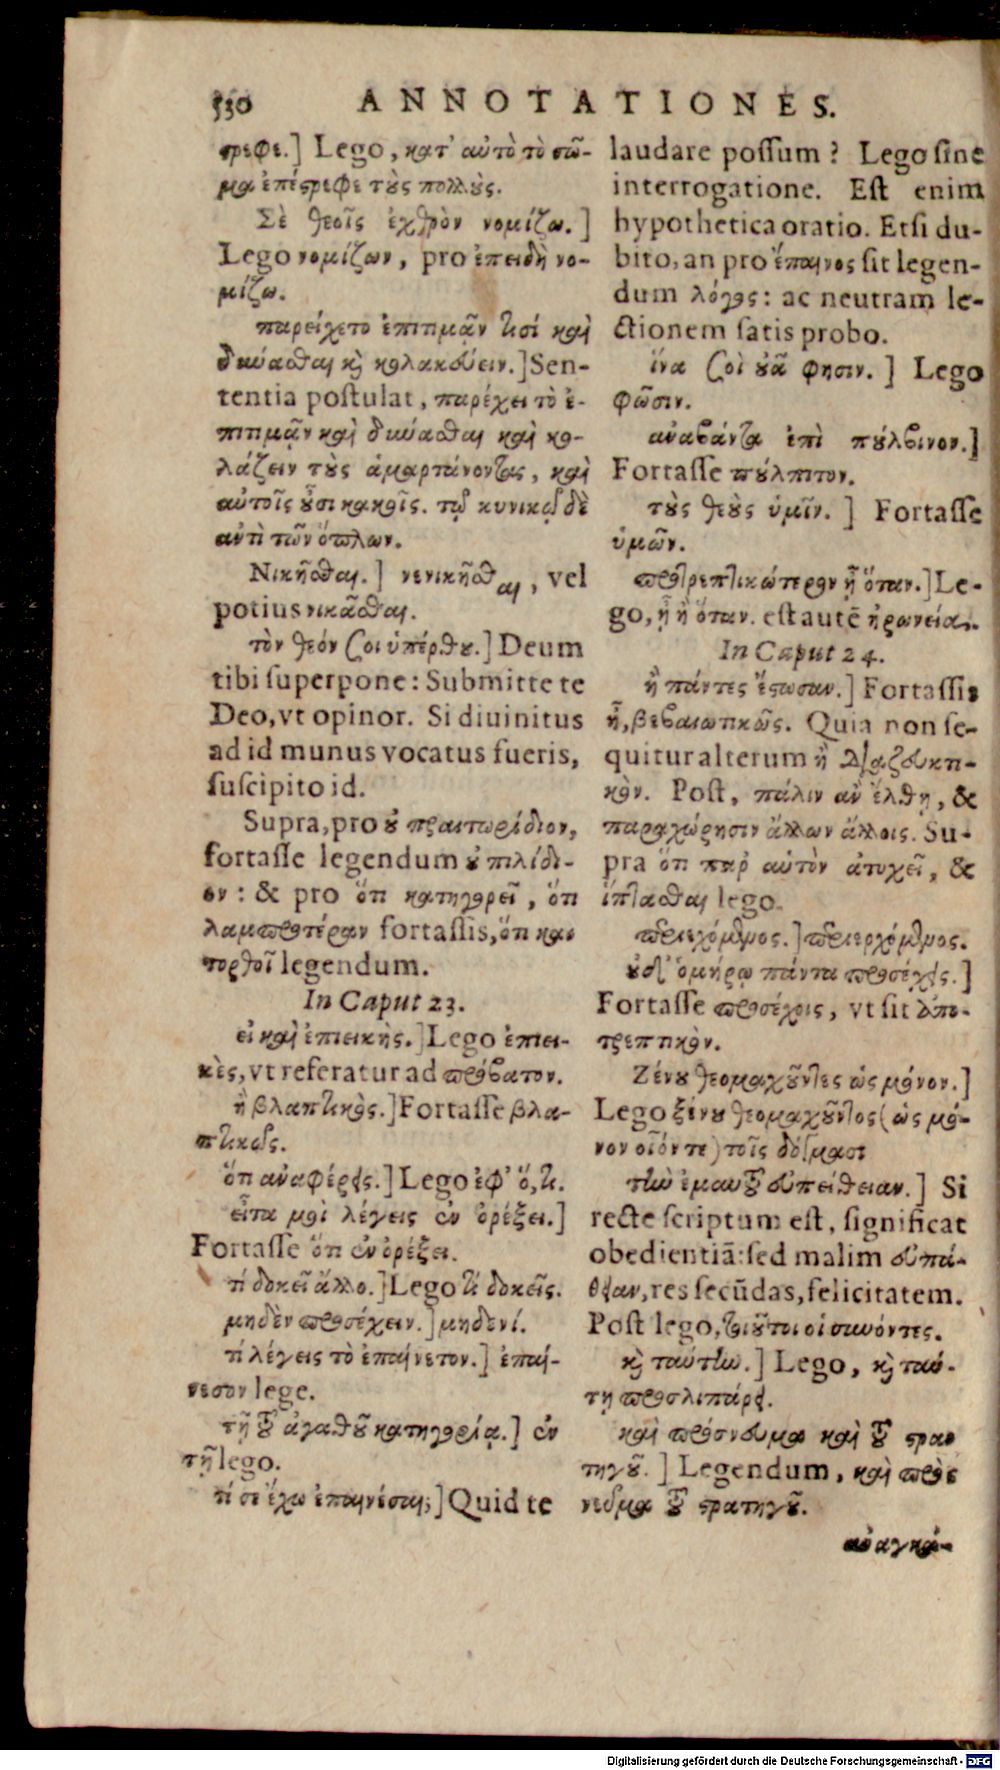 530 ANNOTATIONES.
στρεφε.] Lego, κατ' αὐτὸ τὸ σῶ-
μα ἐπέστρεφε τοὺς πολλούς.
Σὲ θεοῖς ἐχθρὸν νομίζω.]
Lego νομίζων, pro ἐπειδὴ νο-
μίζω.
παρείχετο ἐπιτιμᾶν τισί καὶ
δικάσθαι κὶ κολακεύειν.] Sen-
tentia postulat, παρέχει τὸ ἐ-
πιτιμᾶν καὶ δικάσθαι καὶ κο-
λάζειν τοὺς ἁμαρτάνοντας, καὶ
αὐτοῖς οὖσι κακοῖς. τῷ κυνικῷ δὲ
ἀντὶ τῶν ὅπλων.
Νικῆσθαι.] νενικῆσθαι, vel
potius νικᾶσθαι.
τὸν θεόν σοι ὑπέρθου.] Deum
tibi superpone: Submitte te
Deo, vt opinor. Si diuinitus
ad id munus vocatus fueris,
suscipito id.
Supra, pro οὐ πραιτωρίδιον,
fortasse legendum οὐ πιλίδι-
ον: & pro ὅτι κατηγορεῖ, ὅτι
λαμπροτέραν fortassis, ὅτι κα-
τορθοῖ legendum.
In Caput 23.
εἰ καὶ ἐπιεικὴς.] Lego ἐπιει-
κὲς, vt referatur ad πρόβατον.
ἢ βλαπτικὸς.] Fortasse βλα-
πτικῶς.
ὅτι ἀναφέρεις.] Lego ἐφ' ὅ, τι.
εἶτα μοὶ λέγεις ἐν ὀρέξει.]
Fortasse ὅτι ἐν ὀρέξει.
τί δοκεῖ ἄλλο.] Lego τί δοκεῖς.
μηδὲν προσέχειν.] μηδενί.
τί λέγεις τὸ ἐπαίνετον.] ἐπαί-
νεσον lege.
τῇ τοῦ ἀγαθοῦ κατηγορίᾳ.] ἐν
τῇ lego.
τί σε ἔχω ἐπαινέσαι;] Quid te
laudare possum? Lego sine
interrogatione. Est enim
hypothetica oratio. Etsi du-
bito, an pro ἔπαινος sit legen-
dum λόγος: ac neutram le-
ctionem satis probo.
ἵνα σοὶ οὐᾶ φησιν.] Lego
φῶσιν.
ἀναβάντα ἐπὶ πούλβινον.]
Fortasse πούλπιτον.
τοὺς θεοὺς ὑμῖν.] Fortasse
ὑμῶν.
προτρεπτικώτερον ἢ ὅταν.] Le-
go, ἦ ἢ ὅταν. est autē ἠρωνεία.
In Caput 24.
ἢ πάντες ἔστωσαν.] Fortassis
ἦ, βεβαιωτικῶς. Quia non se-
quitur alterum ἢ διαζευκτι-
κὸν. Post, πάλιν ἂν ἔλθῃ, &
παραχώρησιν ἄλλων ἄλλοις. Su-
pra ὅτι παρ' αὐτὸν ἀτυχεῖ, &
ἵπτασθαι lego.
περιεχόμενος.] περιερχόμενος.
οὐδ' ὁμήρῳ πάντα προσέχεις.]
Fortasse προσέχοις, vt sit ἀπο-
τρεπτικὸν.
Ζένου θεομαχοῦντες ὡς μόνον.]
Lego ξένου θεομαχοῦντος (ὡς μό-
νον οἷόν τε) τοῖς δόγμασι
τὴν ἐμαυτοῦ εὐπείθειαν.] Si
recte scriptum est, significat
obedientiā: sed malim εὐπά-
θειαν, res secūdas, felicitatem.
Post lego, τοιοῦτοι οἱ συνόντες.
κὶ ταύτην.] Lego, κὶ ταύ-
τῃ προσλιπάρει.
καὶ πρόσνευμα καὶ τοῦ στρα-
τηγοῦ.] Legendum, καὶ πρὸς
νεῦμα τοῦ στρατηγοῦ.
ἀναγκά-
Digitalisierung gefördert durch die Deutsche Forschungsgemeinschaft - DFG